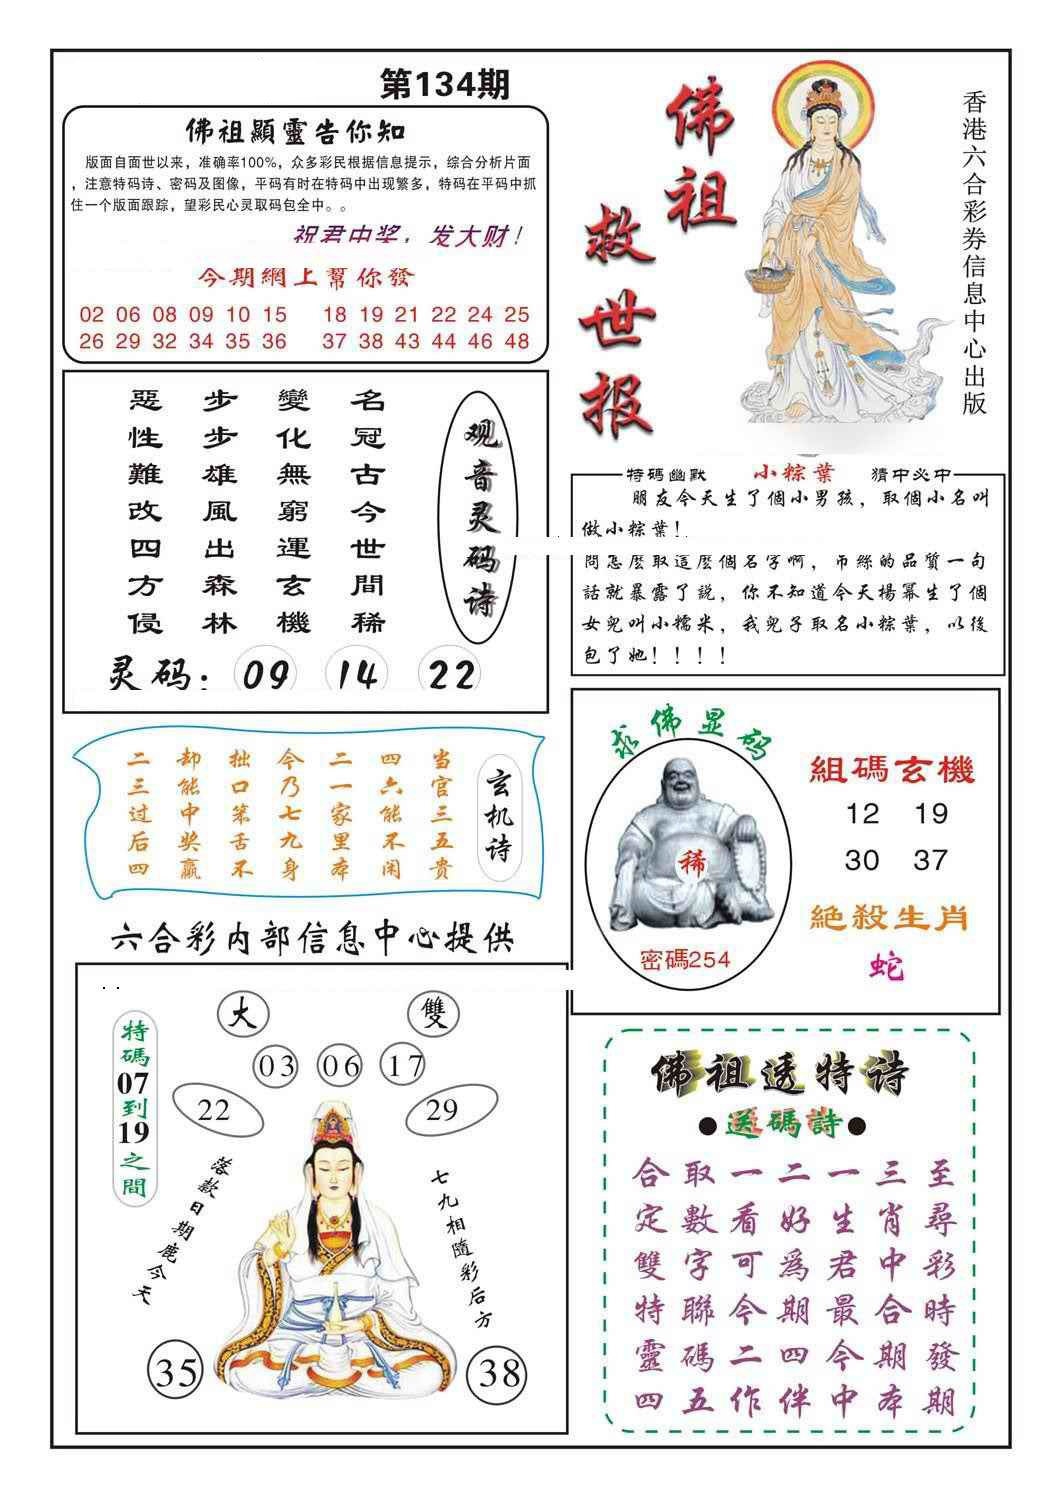 第134期
佛祖顯靈告你知
版面自面世以来，准确率100%，众多彩民根据信息提示，综合分析片面
，注意特码诗、密码及图像，平码有时在特码中出现繁多，特码在平码中抓
住一个版面跟踪，望彩民心灵取码包全中。。
祝君中奖，发大财！
今期網上幫你發
02 06 08 09 10 15 18 19 21 22 24 25
26 29 32 34 35 36 37 38 43 44 46 48
佛祖
救世报
香港六合彩券信息中心出版
观音灵码诗
名冠古今世間稀
變化無窮運玄機
步步雄風出森林
惡性難改四方侵
灵码：09 14 22
特碼幽默 小粽葉 猜中必中
朋友今天生了個小男孩，取個小名叫
做小粽葉！
問怎麽取這麽個名字啊，吊絲的品質一句
話就暴露了説，你不知道今天楊冪生了個
女兒叫小糯米，我兒子取名小粽葉，以後
包了她！！！！
玄机诗
当官三五贵
四六能不闲
二一家里本
今乃七九身
拙口笨舌不
却能中奖赢
二三过后四
求佛显码
稀
密碼254
組碼玄機
12 19
30 37
絕殺生肖
蛇
六合彩内部信息中心提供
大 雙
03 06 17
22 29
特碼07到19之間
落款日期鹿今天
七九相隨彩后方
35 38
佛祖透特诗
●送碼詩●
合取一二一三至
定數看好生肖尋
雙字可為君中彩
特聯今期最合時
靈碼二四今期發
四五作伴中本期